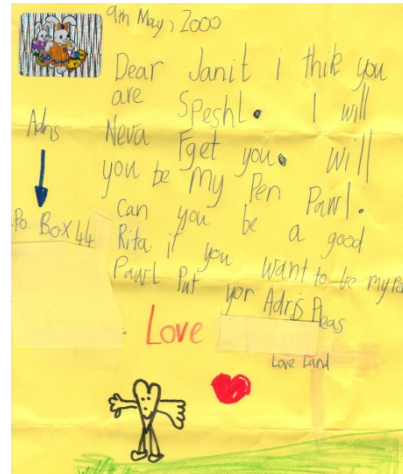 9th May, 2000
Dear Janit i thik you
are Speshl. I will
Neva Fget you. Will
you be My Pen Pawl.
Can you be a good
Rita if you want to be my Pen
Pawl Put yor Adris Pleas
Adris
P.o. Box 44
Love
Love Land